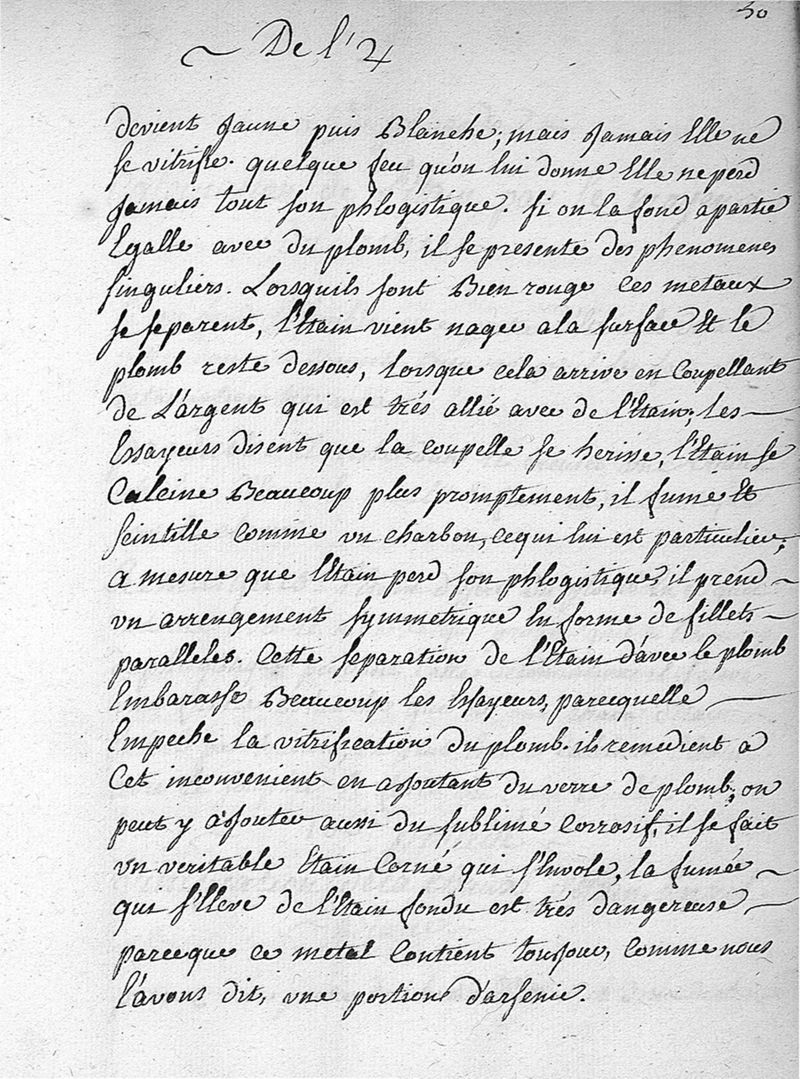 50
De l'♃
devient Jaune puis Blanche; mais Jamais Elle ne
se vitrifie. quelque feu qu'on lui donne Elle ne perd
Jamais tout son phlogistique. si on la fond a partie
Egalle avec du plomb, il se presente des phenomenes
singuliers. Lorsquils sont Bien rouge Ces metaux
se separent, l'Etain vient nager a la surface Et le
plomb reste dessous, lorsque cela arrive en Coupellant
de L'argent qui est trés allié avec de l'Etain; les
Essayeurs disent que la coupelle se herisse, l'Etain se
Calcine Beaucoup plus promptement, il fume Et
scintille comme un charbon, ce qui lui est particulier;
a mesure que l'Etain perd son phlogistique, il prend
un arrengement symmetrique En forme de fillets
paralleles. Cette separation de l'Etain d'avec le plomb
Embarasse Beaucoup les Essayeurs, parcequelle
Empeche la vitrification du plomb. ils remedient a
Cet inconvenient en ajoutant du verre de plomb; on
peut y ajouter aussi du sublimé Corrosif, il se fait
un veritable Etain Corné qui s'Envole, la fumée
qui s'Eleve de l'Etain fondu est trés dangereuse
parceque ce metal Contient toujour, comme nous
l'avons dit, une portion d'arsenic.